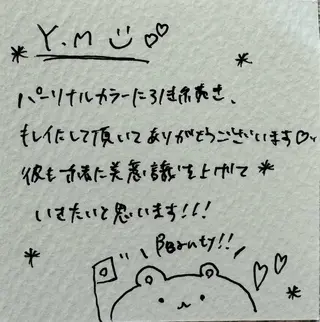 Y.M
パーソナルカラーに引き続き、
キレイにして頂いてありがとうございます
彼も一緒に美意識を上げて
いきたいと思います!!!
Beauty!!